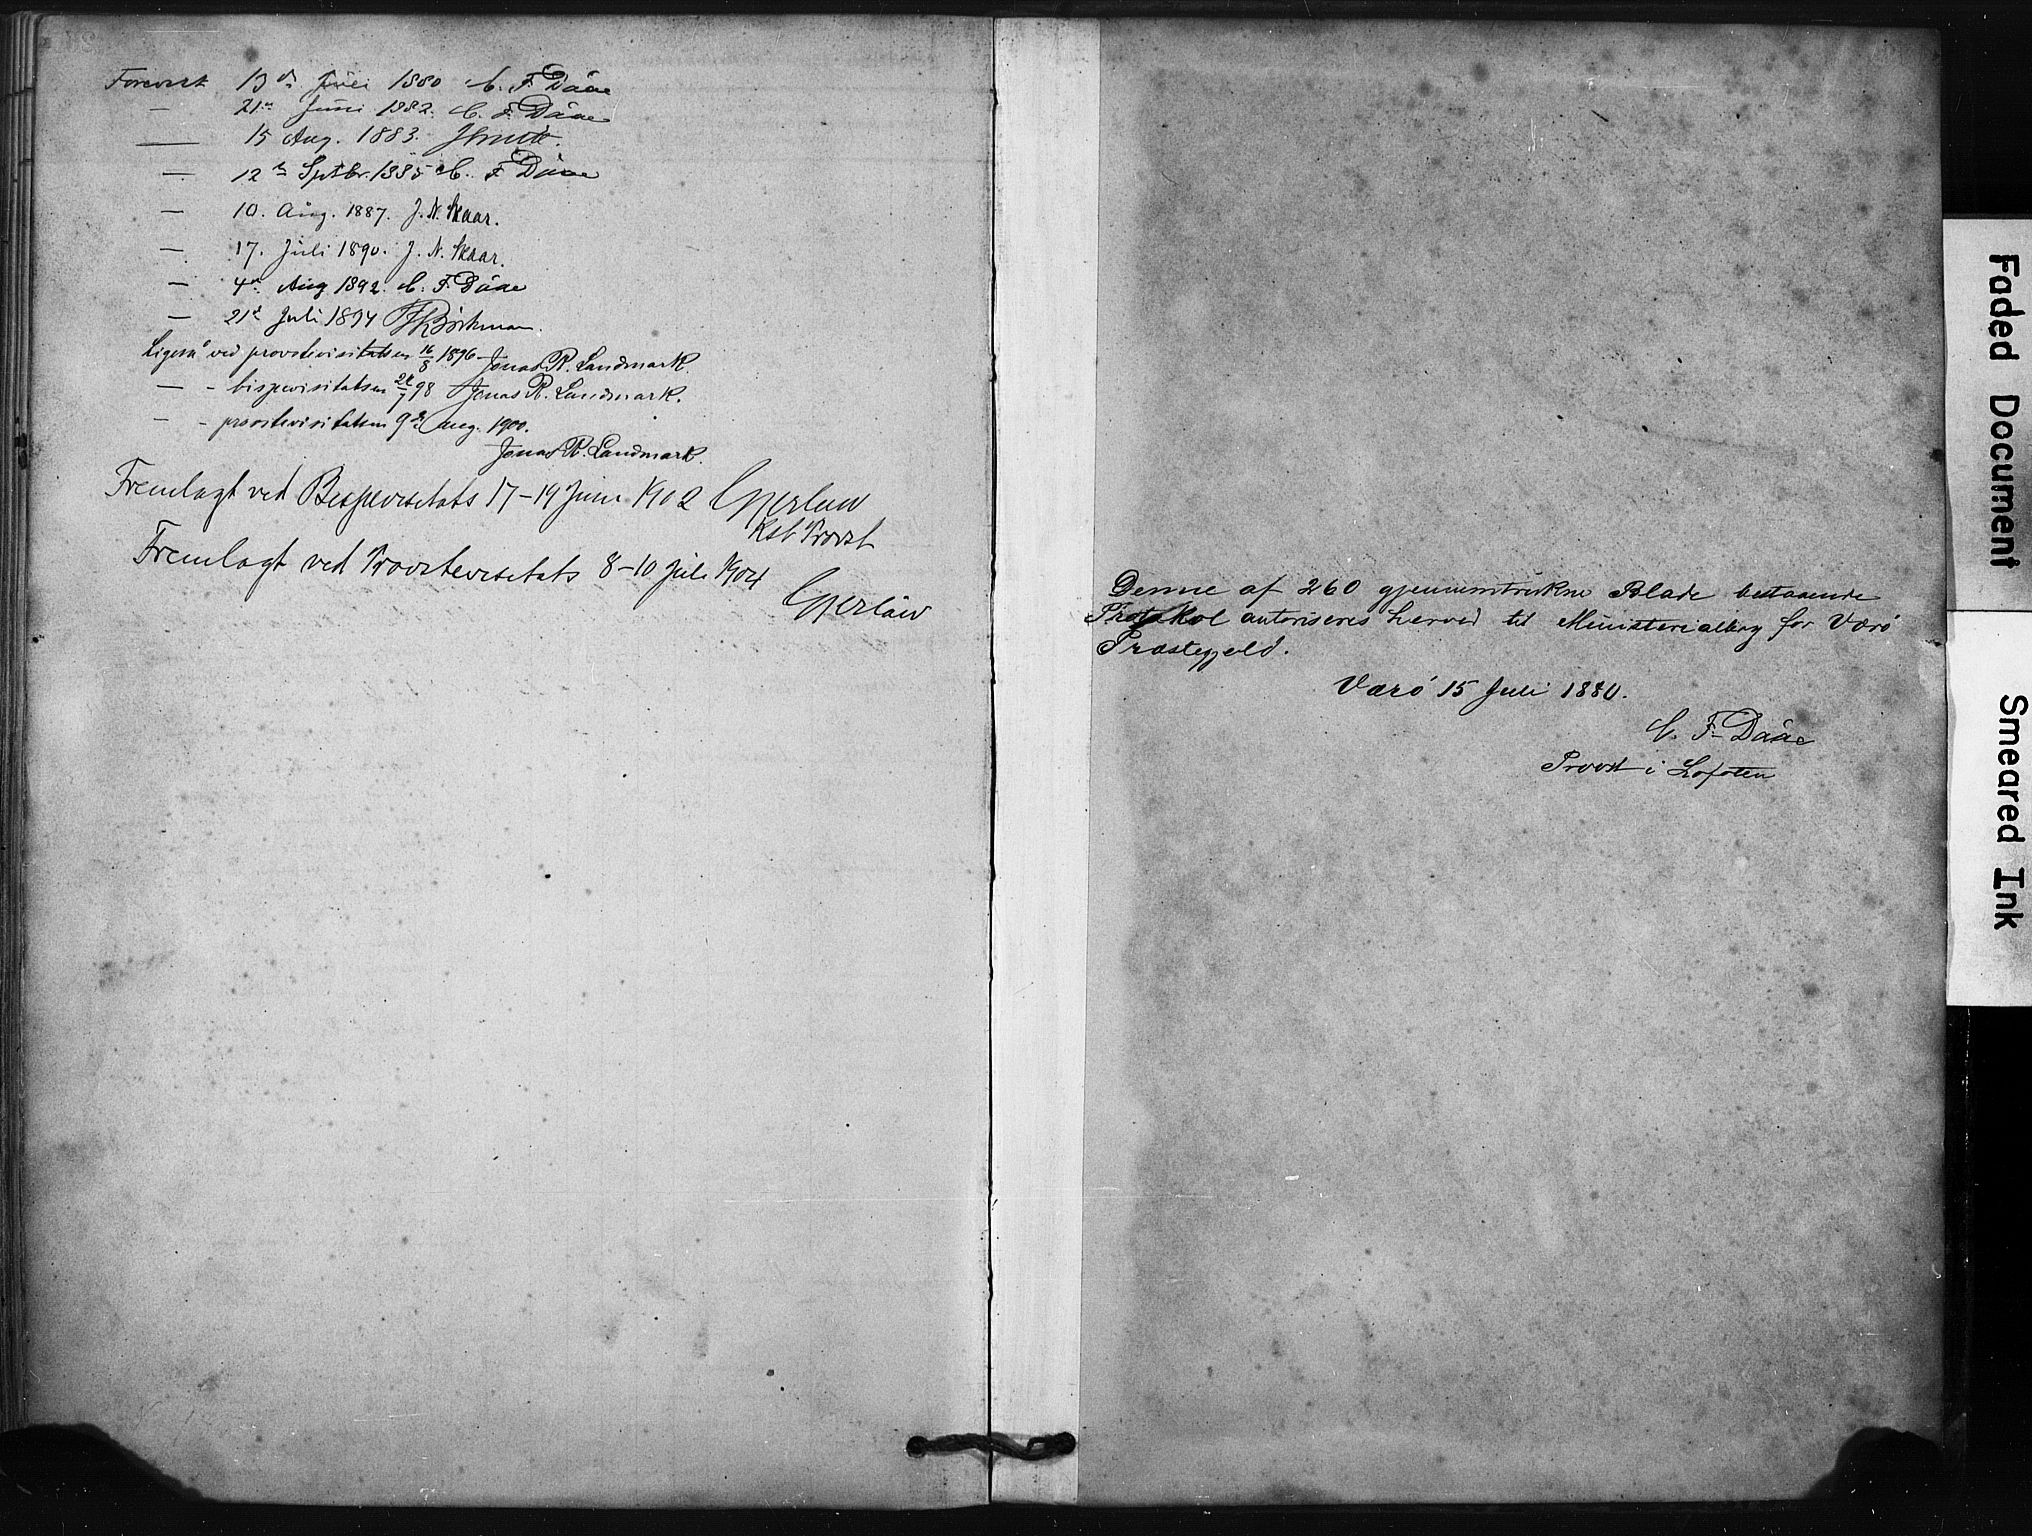 Forevist 15de Juli 1880 C. F. Daae
— 21de Juni 1882. C. F. Daae
— 15 Aug. 1883.
— 12te Septbr. 1885 C. F Daae
— 10. Aug. 1887. J. N. Skaar.
— 17. Juli 1890. J. N. Skaar.
— 4de Aug 1892. C. F. Daae
— 21de Juli 1894
Ligeså ved provstevisitatsen 16/8 1896 Jonas R. Landmark.
— - bispevisitatsen /7 98 Jonas R. Landmark.
— - provstevisitatsen 9de Aug. 1900.
Jonas R. Landmark.
Fremlagt ved Bispevisitats 17–19 Juni 1902 Gjerløw
Kst Provst
Fremlagt ved Provstevisitats 8–10 Juli 1904
Gjerløw
Denne af 260 gjennemtrukne Blade bestaaende
Protokol autoriseres herved til Ministerialbog for Værø
Præstegjeld.
Værø 15 Juli 1880.
C. F. Daae
Provst i Lofoten
Faded Document
Smeared Ink